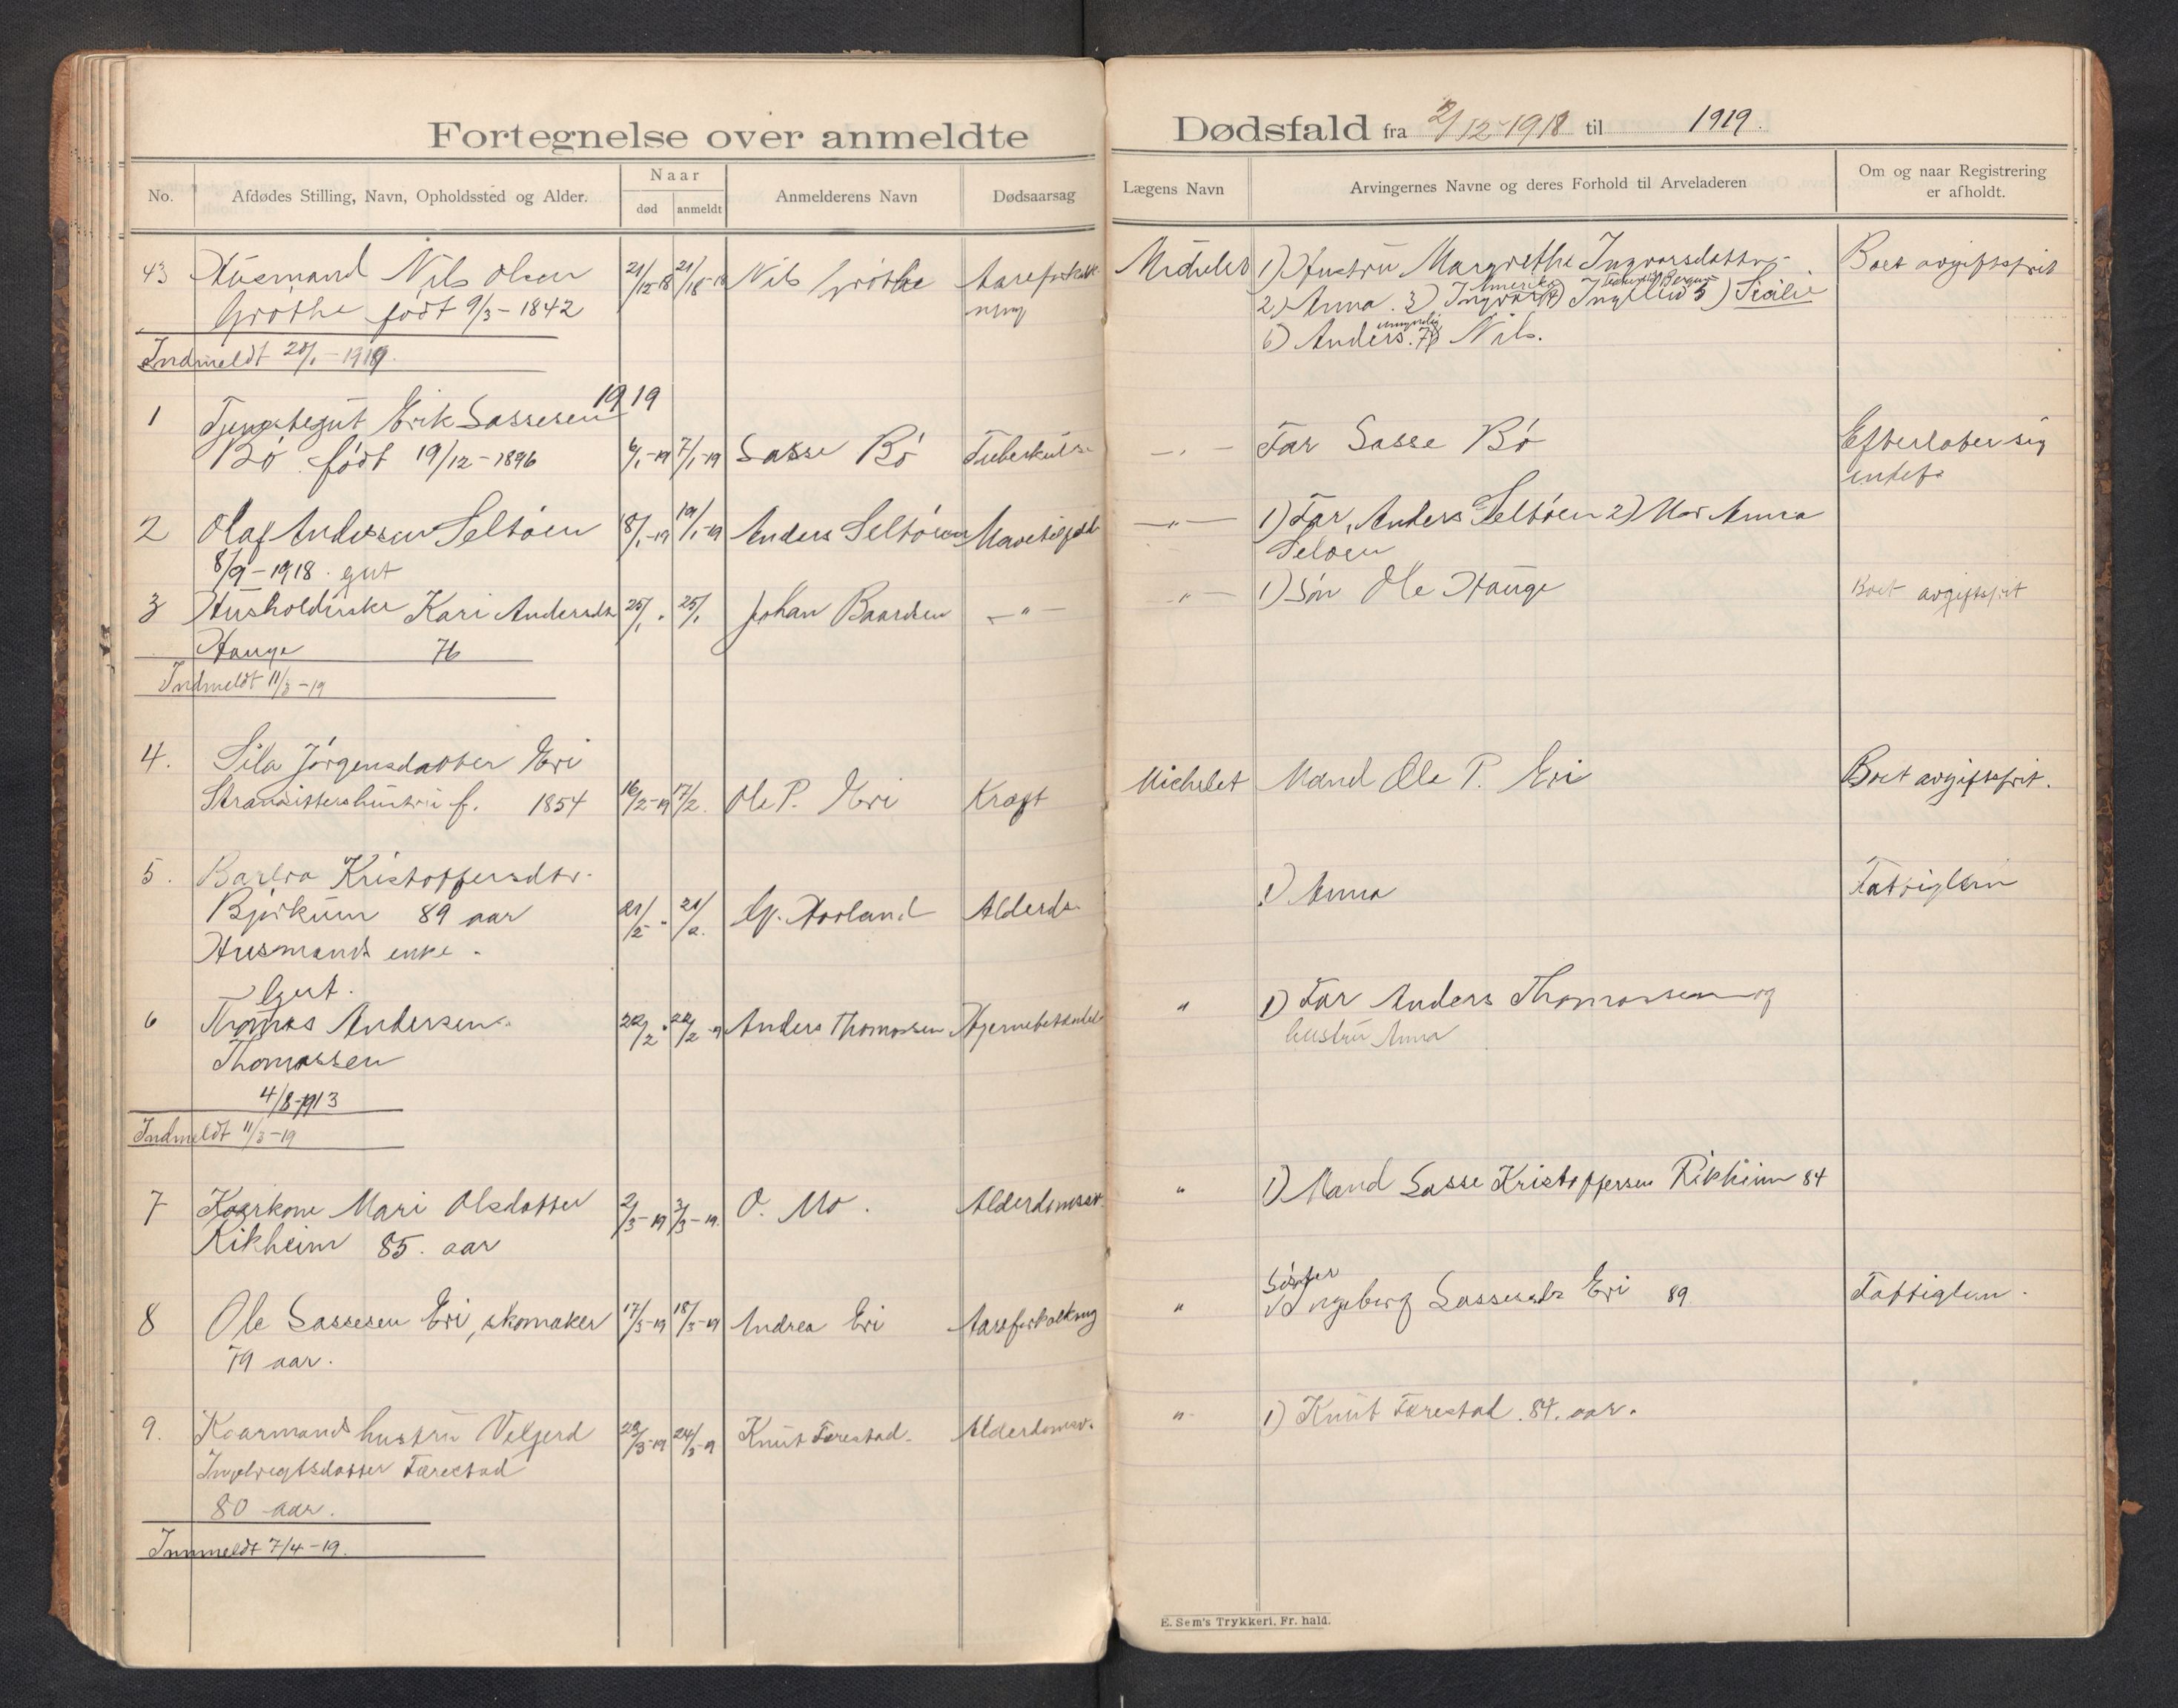 Fortegnelse over anmeldte Dødsfald fra 2/12-1918 til 1919.
No. Afdødes Stilling, Navn, Opholdssted og Alder. Naar død anmeldt Anmelderens Navn Dødsaarsag Lægens Navn Arvingernes Navne og deres Forhold til Arveladeren Om og naar Registrering er afholdt.
43 Husmand Nils Olsen 21/12-18 21/18-18 Nils Grøthe Aareforkalk- Michelet 1) Hustru Margrethe Ingvarsdatter Boet avgiftsfrit
Grøthe født 9/3-1842 ning 2) Anna. 3) Ingvar Amerika 4) Ingebrid Bergum 5) Sicilie
6) Anders. umyndig 7) Nils.
Indmeldt 20/1-1919.
1919
1 Tjenestegut Erik Lassesen — " — Far Lasse Bø Efterlater sig
Bø født 19/12-1896 6/1-19 7/1-19 Lasse Bø Tuberkulose intet.
2 Olaf Andersen Seltøen 18/1-19 19/1-19 Anders Seltøen — " — 1) Far, Anders Seltøen 2) Mor Anna
8/9-1918. gut Seltøen
3 Husholderske Kari Andersdtr 25/1 . 25/1 Johan Baardsen — " — — " — 1) Søn Ole Hauge Boet avgiftsfrit
Hauge 76
Indmeldt 11/3-19
4. Sila Jørgensdatter Eri Michelet Mand Ole P. Eri Boet avgiftsfrit.
Strandsittershustru f. 1854 16/2-19 17/2. Ole P. Eri Kræft
5. Barbra Kristoffersdtr. 1) Anna Fattiglem
Bjørkum 89 aar 21/2 . 21/2. G. Hovland Alderds.
Husmands enke.
Gut.
6 Thomas Andersen 22/2 . 22/2-19 Anders Thomassen Hjernebetændelse " 1) Far Anders Thomassen og
Thomassen hustru Anna
4/8-1913
Indmeldt 11/3-19
7 Kaarkone Mari Olsdatter 2/3-19 3/3-19. O. Mo. Alderdomssv. " 1) Mand Lasse Kristoffersen Rikheim 84
Rikheim 85. aar
Søster
8 Ole Lassesen Eri, skomaker 17/3-19 18/3-19 Andrea Eri Aareforkalkning " 1) Ingeborg Lassesdtr Eri 89 Fattiglem.
79 aar.
9. Kaarmands hustru Velgerd 23/3-19 24/3-19 Knut Færestad. Alderdomsv. " 1) Knut Færestad. 84. aar.
Ingebrigtsdatter Færestad
80 aar.
Innmeldt 7/4-19.
E. Sem's Trykkeri, Fr. hald.